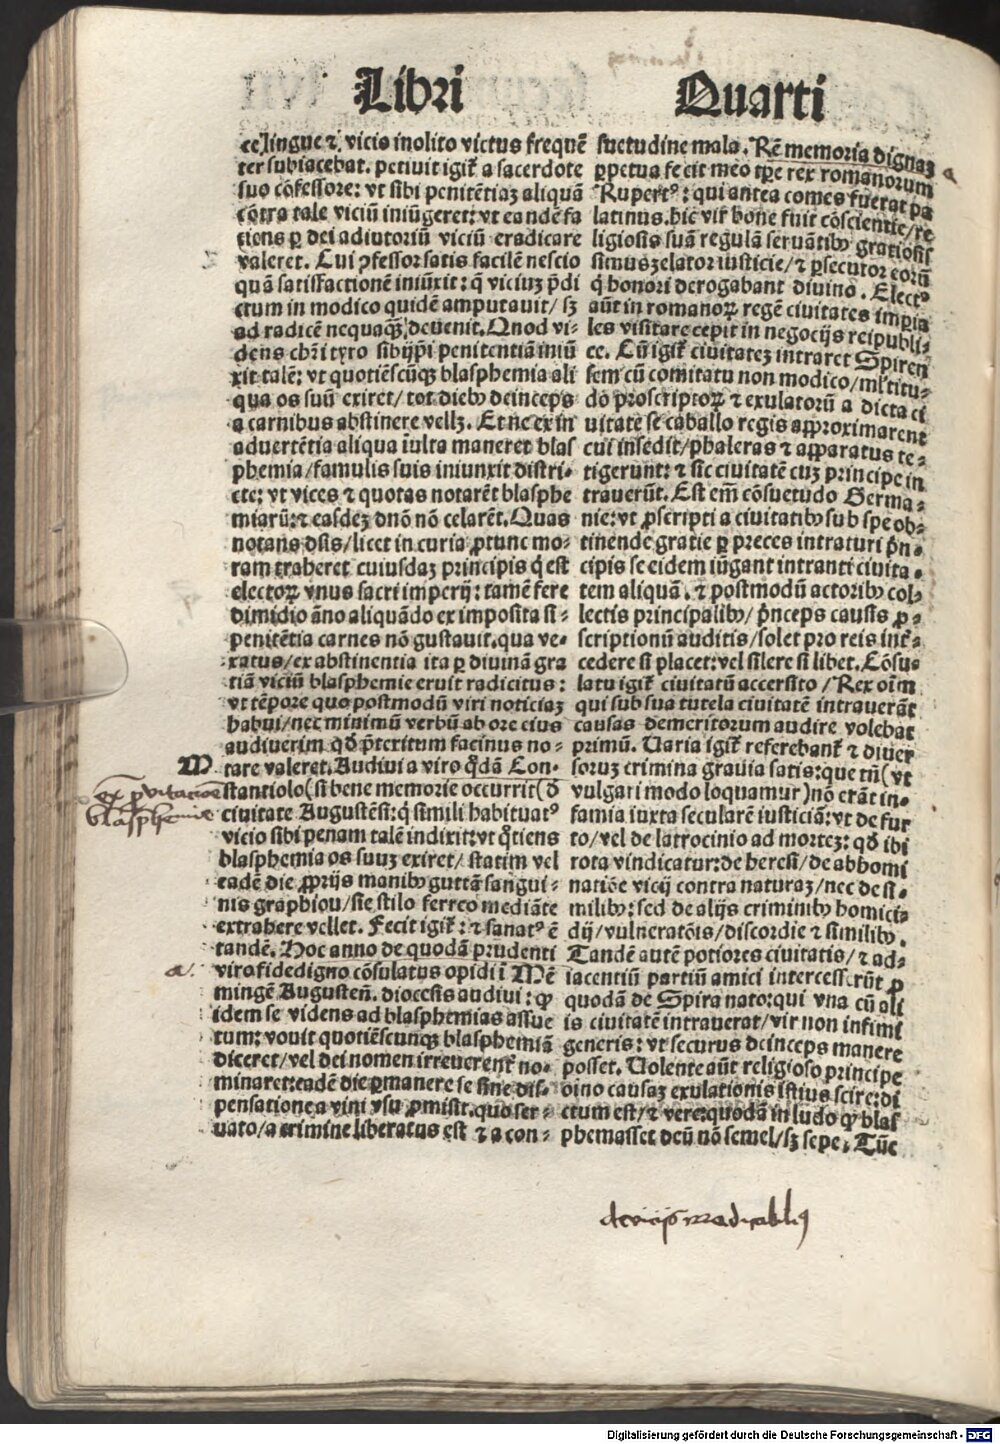 Libri Quarti
ce lingue ⁊ vicio inolito victus frequẽ
ter subiacebat. petiuit igit̃ a sacerdote
suo cõfessore: vt sibi penitẽtiaꝫ aliquã
cõtra tale viciũ iniũgeret: vt eandẽ fa
ctione ꝑ dei adiutoriũ viciũ eradicare
valeret. Cui ꝯfessor satis facilẽ nescio
quã satisfactionẽ iniũxit: q̃ viciuꝫ p̃di
ctum in modico quidẽ amputauit/ sꝫ
ad radicẽ nequaqꝫ̃ deuenit. Qnod vi⸗
dens chr̃i tyro sibijp̃i penitentiã iniũ
xit talẽ: vt quotiẽscũqꝫ blasphemia ali
qua os suũ exiret/ tot diebꝰ deinceps
a carnibus abstinere vellꝫ. Et ne ex in
aduertẽtia aliqua iulta maneret blas
phemia/famulis suis iniunxit distri⸗
cte: vt vices ⁊ quotas notarẽt blasphe
miarũ: ⁊ easdeꝫ dnõ nõ celarẽt. Quas
notans dñs/licet in curia ꝓtunc mo⸗
ram traheret cuiusdaꝫ principis q̃ est
electoꝝ vnus sacri imperij: tamẽ fere
dimidio ãno aliquãdo ex imposita si⸗
penitẽtia carnes nõ gustauit. qua ve⸗
xatus/ex abstinentia ita ꝑ diuinã gra
tiã viciũ blasphemie eruit radicitus:
vt tẽpore quo postmodũ viri noticiaꝫ
habui/nec minimũ verbũ ab ore eius
audiuerim qd̃ p̃teritum facinus no⸗
tare valeret. Audiui a viro q̃dã Con⸗
stantiolo (si bene memorie occurrit) d̃
ciuitate Augustẽsi: q̃ simili habituatꝰ
vicio sibi penam talẽ indixit: vt q̃tiens
blasphemia os suuꝫ exiret/ statim vel
eadẽ die ꝓprijs manibꝰ guttã sangui⸗
nis graphiou/ siẽ stilo ferreo mediãte
extrahere vellet. Fecit igit̃: ⁊ sanatꝰ ẽ
tandẽ. Hoc anno de quodã prudenti
viro fidedigno cõsulatus opidi ĩ Mẽ
mingẽ Augusteñ. diocesis audiui: qꝙ
idem se videns ad blasphemias assue
tum: vouit quotiẽscunqꝫ blasphemiã
diceret/vel dei nomen irreuerent̃ no⸗
minaret: eadẽ die ꝑmanere se sine dis⸗
pensatione a vini vsu ꝓmisit. quo ser⸗
uato/a crimine liberatus est ⁊ a con⸗
suetudine mala. Rẽ memoria dignaꝫ
ꝑpetua fecit meo tp̃e rex romanorum
Rupertꝰ: qui antea comes fuerat pa
latinus. hic vir bone fuit cõscientie/re
ligiosis suã regulã seruãtibꝰ gratiosis
simus zelator iusticie/ ⁊ ꝑsecutor eorũ
q̃ honori derogabant diuino. Electꝰ
aũt in romanoꝝ regẽ ciuitates imp̃ia
les visitare cepit in negocijs reipubli⸗
ce. Cũ igit̃ ciuitateꝫ intraret Spireñ
sem cũ comitatu non modico/ ml̃titu⸗
do proscriptoꝝ ⁊ exulatorũ a dicta ci
uitate se caballo regis approximarent
cui insedit/ phaleras ⁊ apparatus te⸗
tigerunt: ⁊ sic ciuitatẽ cuꝫ principe in
trauerũt. Est em̃ cõsuetudo Germa⸗
nie: vt ꝓscripti a ciuitatibꝰ sub spe ob⸗
tinende gratie ꝑ preces intraturi p̃n⸗
cipis se eidem iũgant intranti ciuita⸗
tem aliquã. ⁊ postmodũ actoribꝰ col⸗
lectis principalibꝰ/ p̃nceps causis ꝓ⸗
scriptionũ auditis/ solet pro reis int̃⸗
cedere si placet: vel silere si libet. Cõsu⸗
latu igit̃ ciuitatũ accersito/ Rex oĩm
qui sub sua tutela ciuitatẽ intrauerãt
causas demeritorum audire volebat
primũ. Uaria igit̃ referebant̃ ⁊ diuer
soruꝫ crimina grauia satis: que tñ (vt
vulgari modo loquamur) nõ erãt in⸗
famia iuxta secularẽ iusticiã: vt de fur
to/ vel de latrocinio ad morteꝫ: qd̃ ibi
rota vindicatur: de heresi/ de abhomi
natiõe vicij contra naturaꝫ/ nec de si⸗
milibꝰ: sed de alijs criminibꝰ homici⸗
dij/ vulneratõis/ discordie ⁊ similibꝰ.
Tandẽ autẽ potiores ciuitatis/ ⁊ ad⸗
iacentiũ partiũ amici intercesserũt ꝓ
quodã de Spira nato: qui vna cũ ali
is ciuitatẽ intrauerat/ vir non infimi
generis: vt securus deinceps manere
posset. Uolente aũt religioso principe
oĩno causaꝫ exulationis istius scire: di
ctum est/ ⁊ vere: quodã in ludo qꝙ blas
phemasset deũ nõ semel/ sꝫ sepe. Tũc
blasphemie
Digitalisierung gefördert durch die Deutsche Forschungsgemeinschaft - DFG